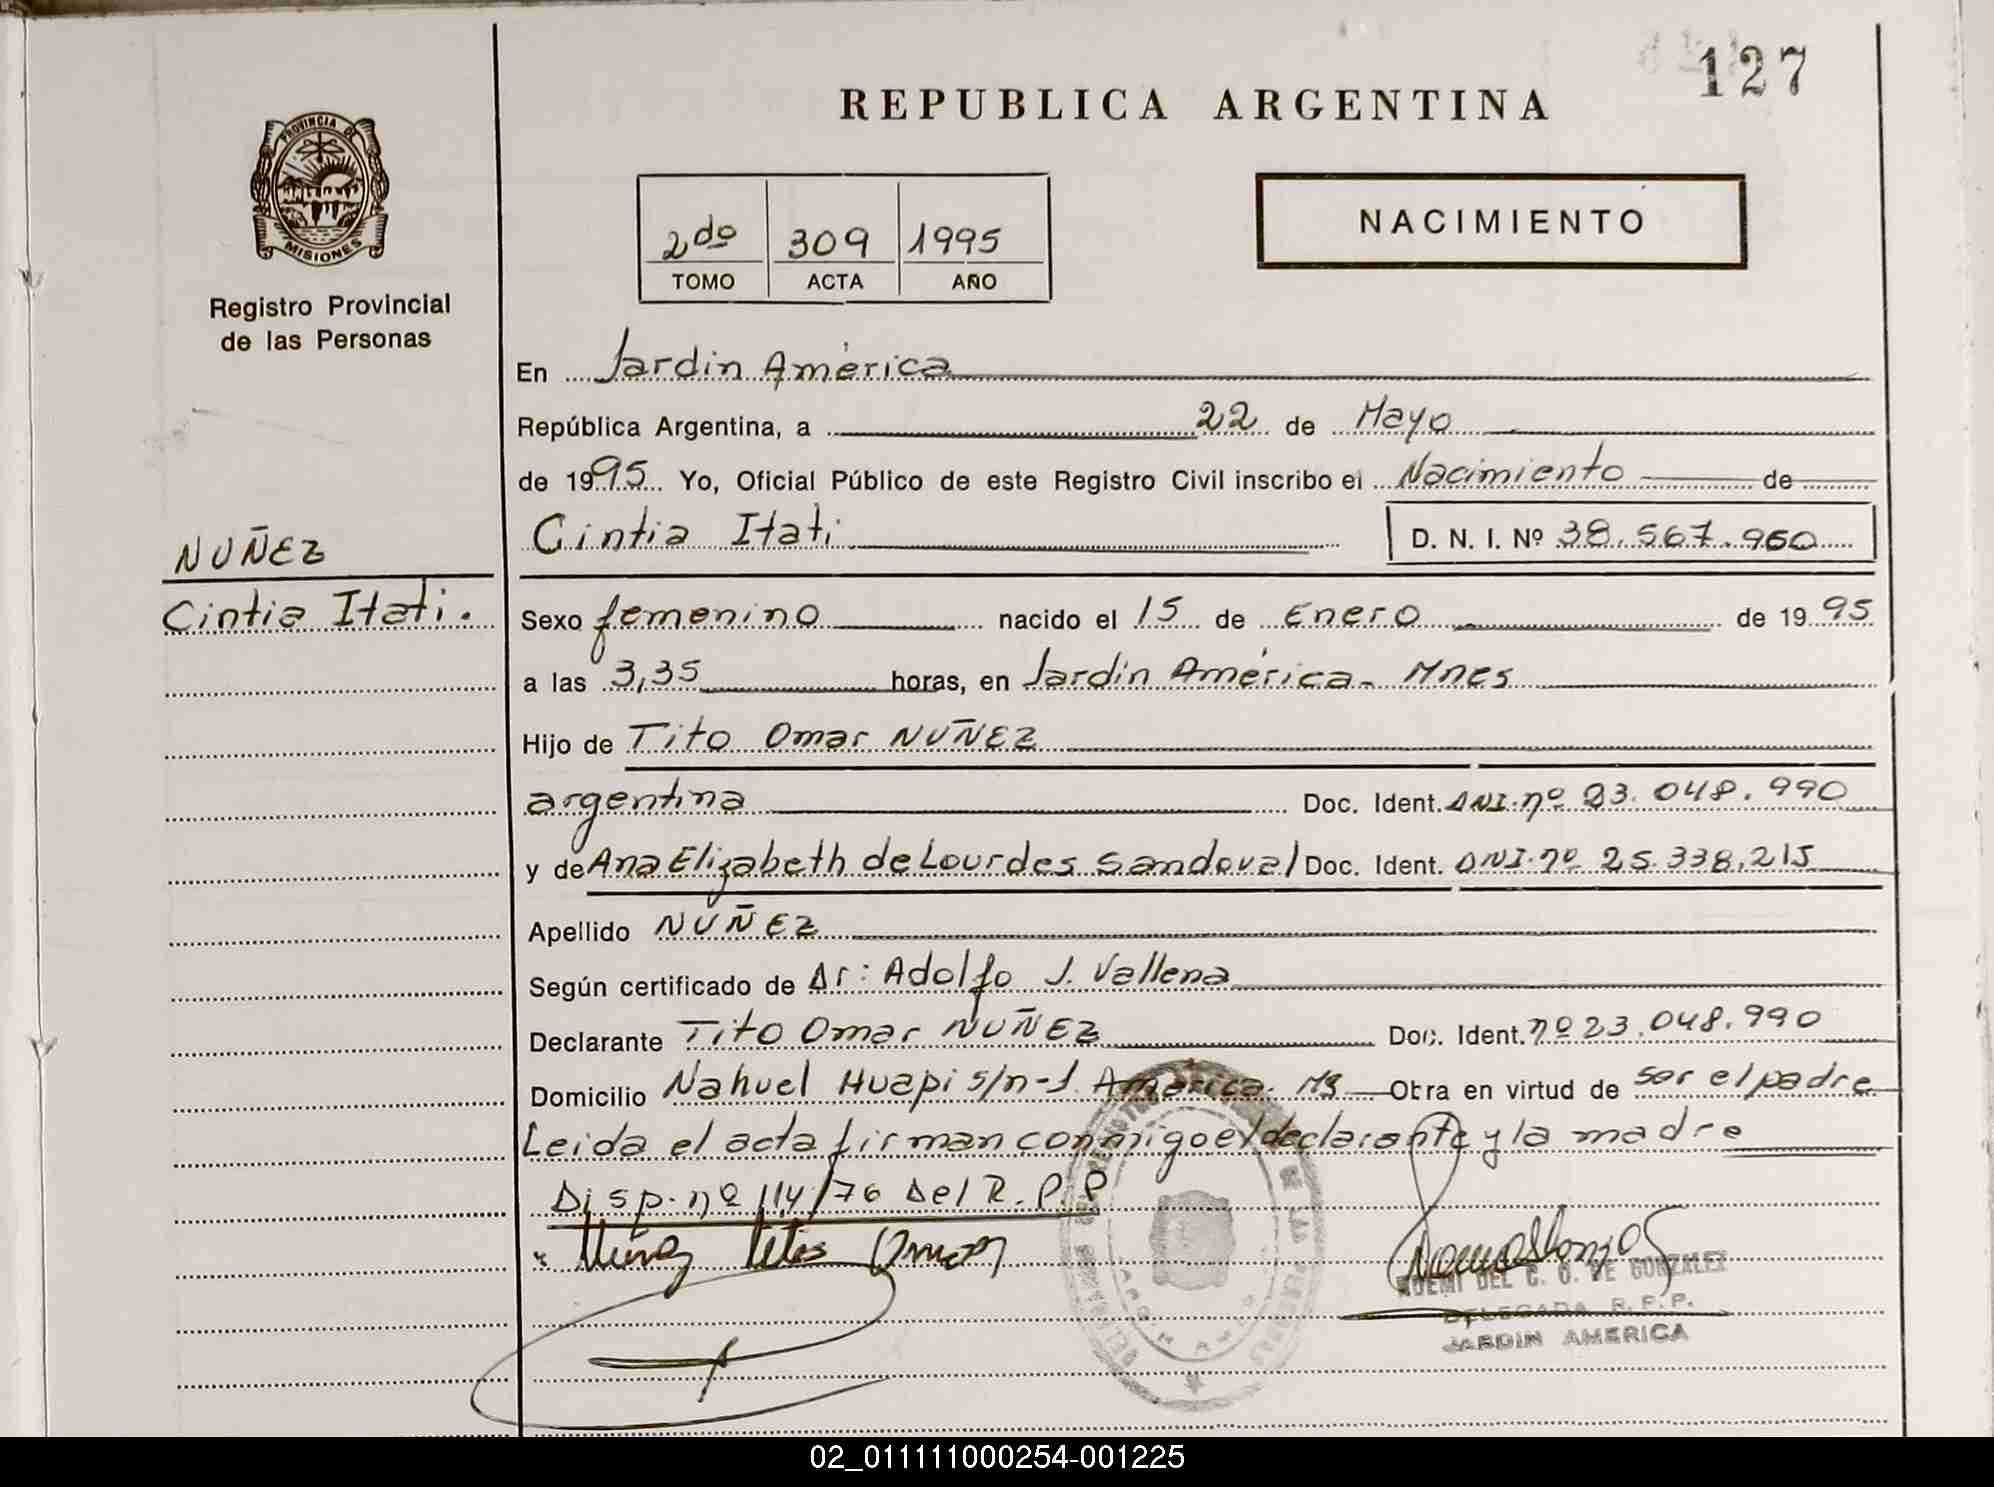 127
REPUBLICA ARGENTINA
PROVINCIA DE
MISIONES
Registro Provincial
de las Personas
2do 309 1995
TOMO ACTA AÑO
NACIMIENTO
En Jardin América
República Argentina, a 22 de Mayo
de 1995 Yo, Oficial Público de este Registro Civil inscribo el Nacimiento de
Cintia Itati D. N. I. Nº 38.567.960
NUÑEZ
Cintia Itati.
Sexo femenino nacido el 15 de Enero de 1995
a las 3,35 horas, en Jardin América. Mnes
Hijo de Tito Omar NUÑEZ
argentina Doc. Ident. DNI. nº 23.048.990
y de Ana Elizabeth de Lourdes Sandoval Doc. Ident. DNI. nº 25.338,215
Apellido NUÑEZ
Según certificado de Dr: Adolfo J. Vallena
Declarante Tito Omar NUÑEZ Doc. Ident. nº 23.048.990
Domicilio Nahuel Huapi s/n - J. América. Ms Obra en virtud de ser el padre
Leida el acta firman conmigo el declarante y la madre
Disp. nº 114/76 Del R.P.P
Nuñez Titos Omar
NOEMI DEL C. G. DE GONZALEZ
DELEGADA R.P.P.
JARDIN AMERICA
02_011111000254-001225